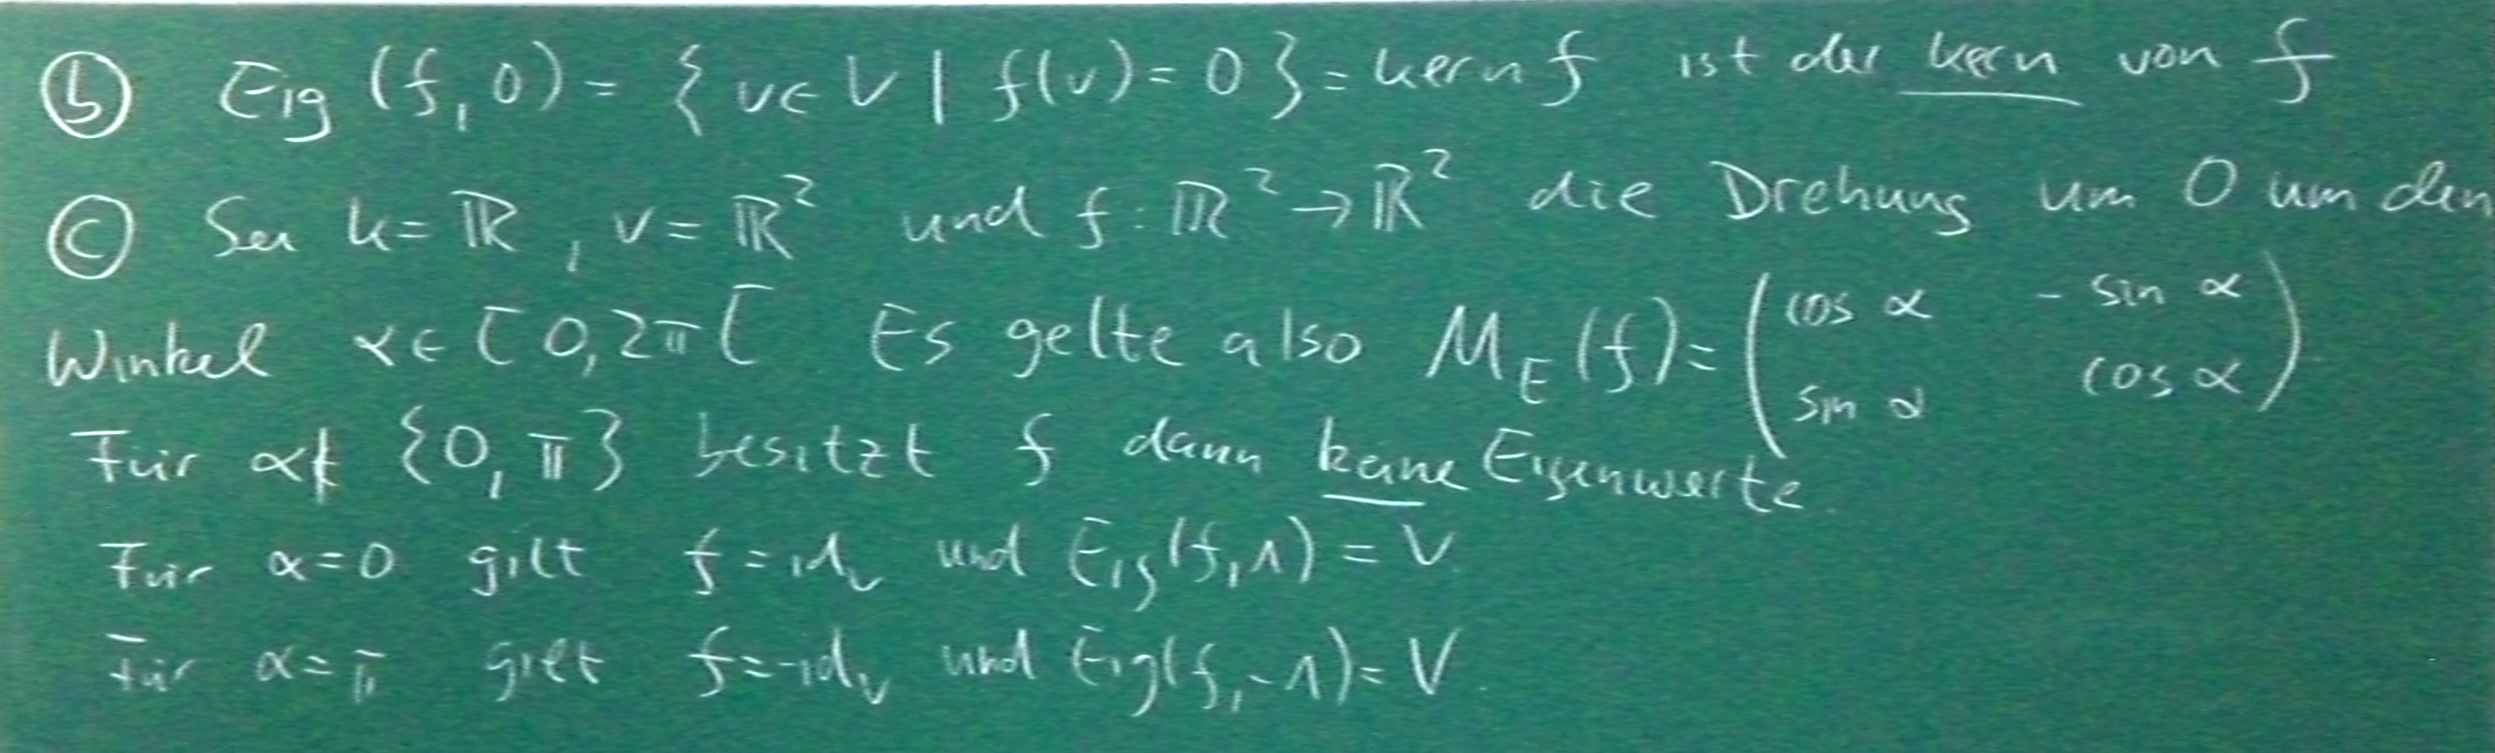 ⓑ Eig (f, 0) = { v ∈ V | f(v) = 0 } = kern f ist der kern von f
ⓒ Sei k = ℝ, V = ℝ² und f : ℝ² → ℝ² die Drehung um 0 um den
Winkel α ∈ [ 0, 2π [ Es gelte also M_E (f) = ( cos α - sin α sin α cos α ).
Für α ∉ {0, π} besitzt f dann keine Eigenwerte.
Für α = 0 gilt f = id_V und Eig(f, 1) = V.
Für α = π gilt f = -id_V und Eig(f, -1) = V.